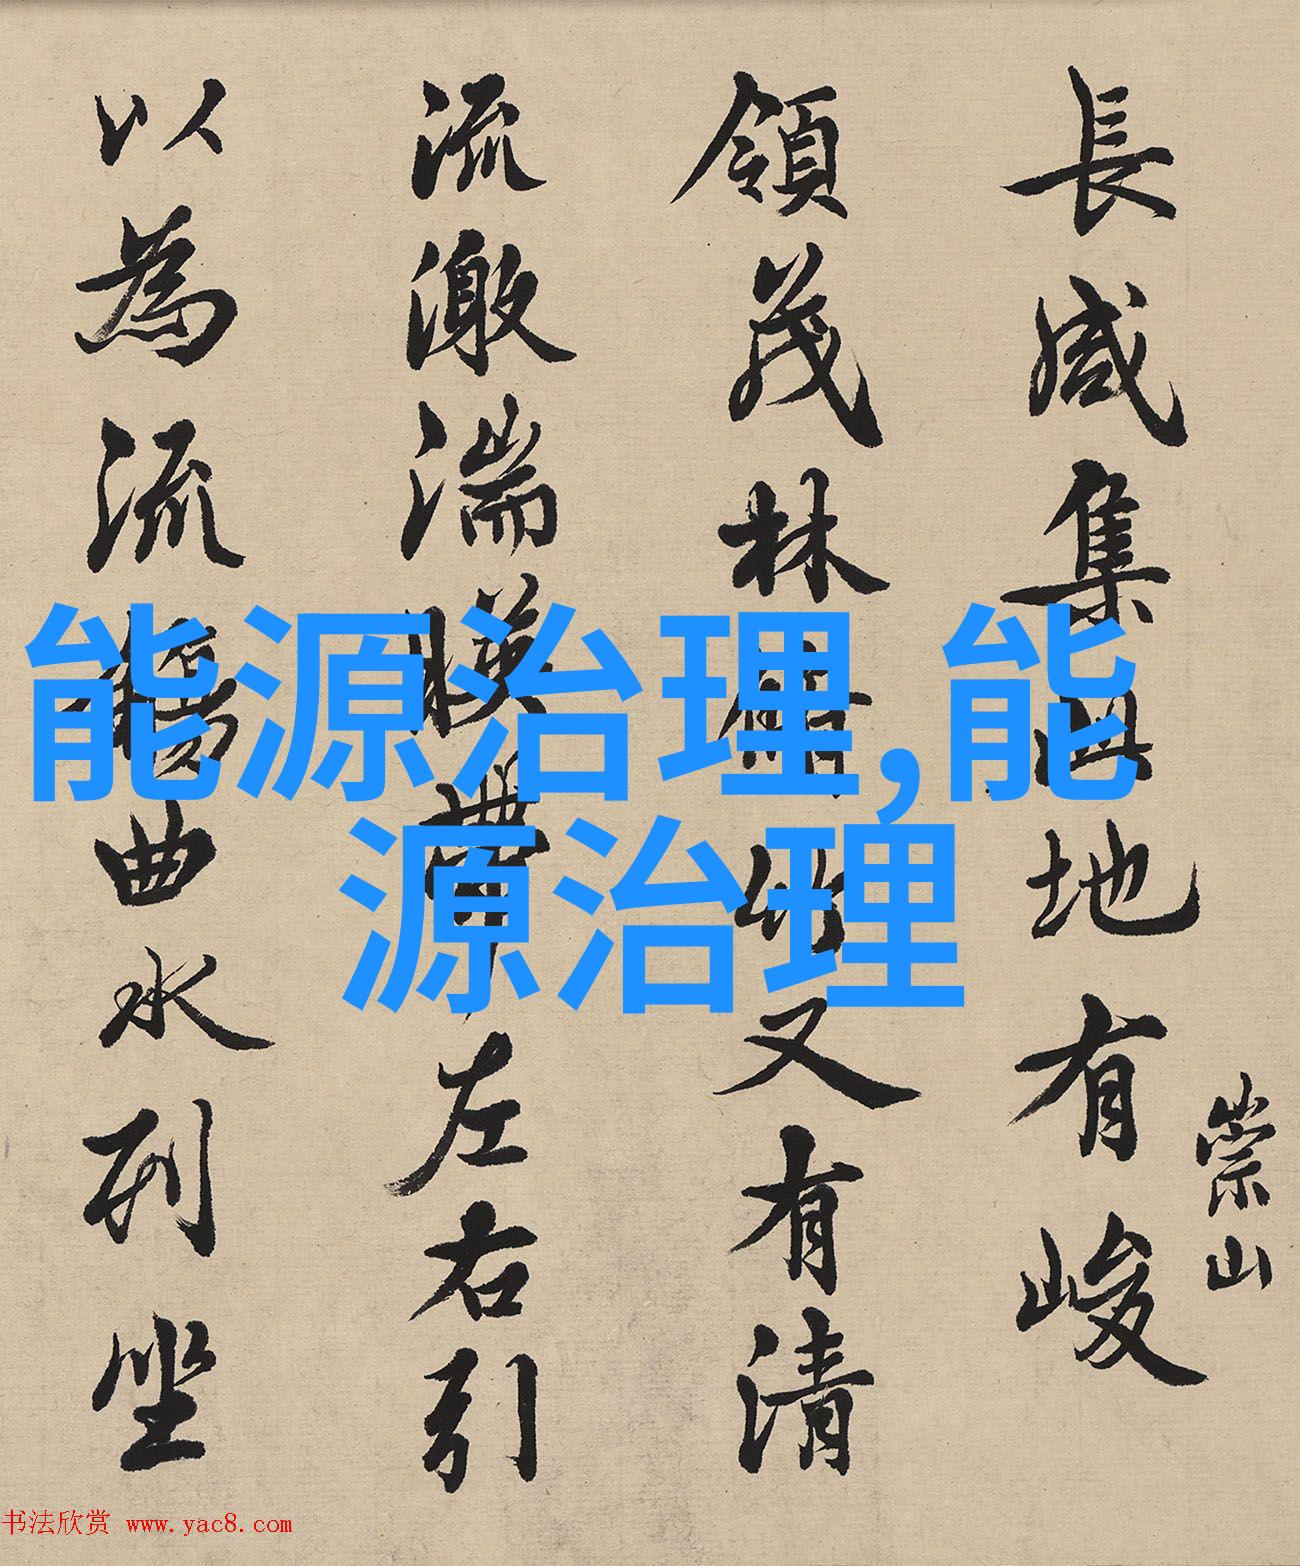 長咸集此地有峻
崇山
領茂林脩竹又有清
流激湍暎帶左右引
以為流觴曲水列坐
能源治理,能
源治理
书法欣赏 www.yac8.com